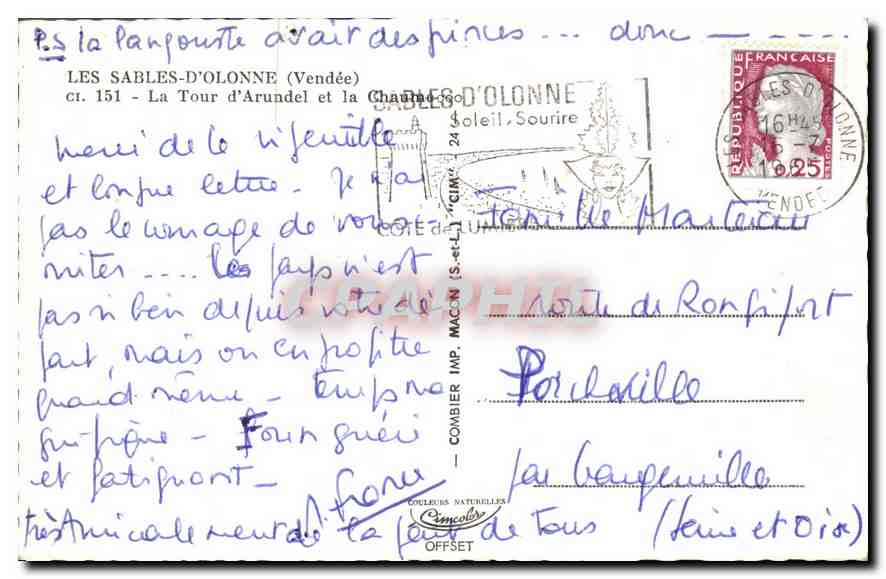 P.S la langouste avait des pinces ... donc — — - - -
LES SABLES-D'OLONNE (Vendée)
CI. 151 - La Tour d'Arundel et la Chaume
SABLES-D'OLONNE
Soleil, Sourire
CÔTE de LUMIÈRE
REPUBLIQUE FRANÇAISE
POSTES
0,25
LES SABLES D'OLONNE
16H45
VENDEE
merci de la si gentille
et longue lettre - Je n'ai
pas le courage de vous
imiter .... Le pays n'est
pas si bien depuis votre dé
part, mais on en profite
quand même - Temps ma
gnifique -
et fatiguant -
France
très Amicalement de la part de tous
Famille Marteau
route de
Porcheville
par Gargenville
(Seine et Oise)
— COMBIER IMP. MACON (S.-et-L.) "CIM" - 24
COULEURS NATURELLES
Cimcolor
OFFSET
CPAPHIL